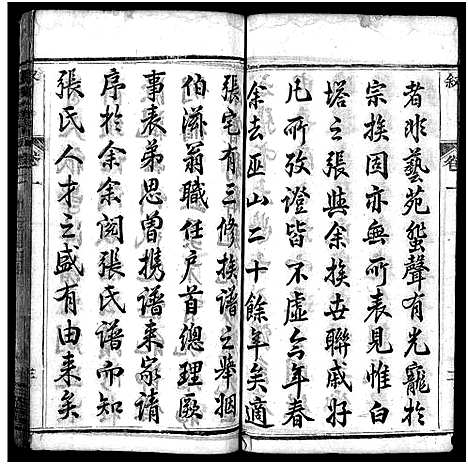 者非藝苑蜚聲有光寵於
宗族固亦無所表見惟白
塔之張與余族世聯戚好
凡所攷證皆不虛今年春
余去巫山二十餘年矣適
張宅有三修族譜之舉姻
伯滋翁職任戶首總理厥
事表弟思曾携譜来家請
序於余余閱張氏譜而知
張氏人才之盛有由来矣
叙
卷一
三